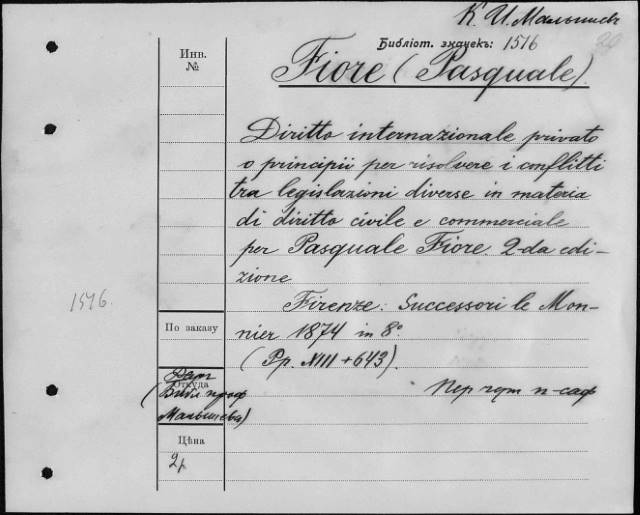 К. И. Малышев
Библіот. значекъ: 1516
Инв.
№
Fiore (Pasquale).
Diritto internazionale privato
o principii per risolvere i conflitti
tra legislazioni diverse in materia
di diritto civile e commerciale
per Pasquale Fiore. 2-da edi-
zione
1516.
Firenze: Successori le Mon-
nier 1874 in 8°
По заказу
(Pp. XIII + 643).
Даръ
Откуда
(Библ проф
Малышева)
Цѣна
2р